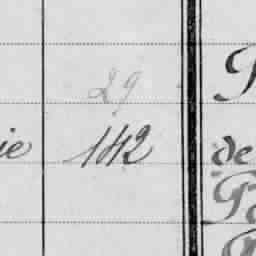 29
ie 142 de